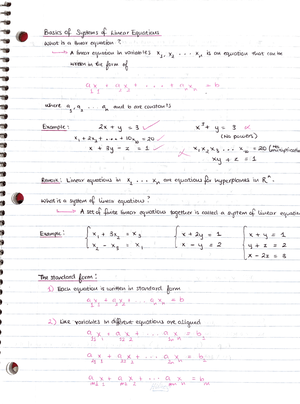 Basics of Systems of Linear Equations
What is a linear equation?
→ A linear equation in variables x₁, x₂ ... xₙ is an equation that can be
written in the form of
a₁x₁ + a₂x₂ + ... + aₙxₙ = b
where a₁, a₂ ... aₙ and b are constants
Example: 2x + y = 3 ✓ x³ + y = 3 ✗
x₁ + 2x₂ + .... + 10x₁₀ = 20 ✓ (No powers)
x + 3y - z = 1 ✓ ✗ x₁x₂x₃ ... xₙ = 20 (No multiplication)
xy + z = 1
Remark: Linear equations in x₁ ... xₙ are equations for hyperplanes in ℝⁿ.
What is a system of linear equations?
→ A set of finite linear equations together is called a system of linear equations
Example: { x₁ + 3x₂ = x₃ { x + 2y = 1 { x + y = 1
x₂ - x₃ = x₁ x - y = 2 y + z = 2
x - 2z = 3
The standard form:
1) Each equation is written in standard form
a₁x₁ + a₂x₂ ... aₙxₙ = b
2) Like variables in different equations are aligned
a₁₁x₁ + a₁₂x₂ + ... a₁ₙxₙ = b₁
a₂₁x₁ + a₂₂x₂ + ... a₂ₙxₙ = b₂
aₘ₁x₁ + aₘ₂x₂ + ... aₘₙxₙ = bₘ